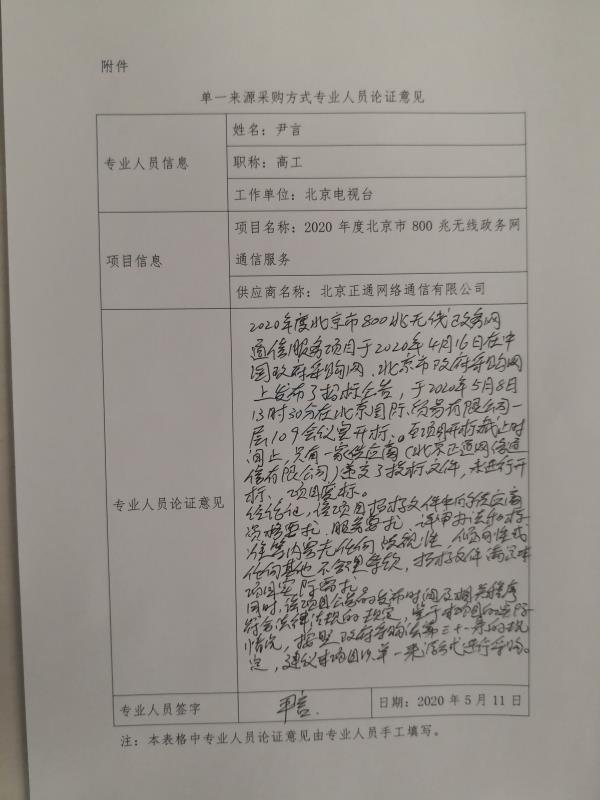 附件
单一来源采购方式专业人员论证意见
专业人员信息
姓名：尹言
职称：高工
工作单位：北京电视台
项目信息
项目名称：2020 年度北京市 800 兆无线政务网
通信服务
供应商名称：北京正通网络通信有限公司
专业人员论证意见
2020年度北京市800兆无线政务网
通信服务项目于2020年4月16日在中
国政府采购网、北京市政府采购网
上发布了招标公告，于2020年5月8日
13时30分在北京国际贸易有限公司一
层109会议室开标。至项目开标截止时
间止，只有一家供应商（北京正通网络通
信有限公司）递交了投标文件，未进行开
标、项目废标。
经论证，该项目招标文件中的供应商
资格要求、服务要求、评审办法和标
准等内容无任何歧视性、倾向性或
任何其他不合理条款，招标文件满足本
项目实际需求
同时，该项目公告的发布时间及相关程序
符合法律法规的规定，鉴于本项目的实际
情况，按照政府采购法第三十一条的规
定，建议本项目以单一来源方式进行采购。
专业人员签字
尹言
日期：2020 年 5 月 11 日
注：本表格中专业人员论证意见由专业人员手工填写。